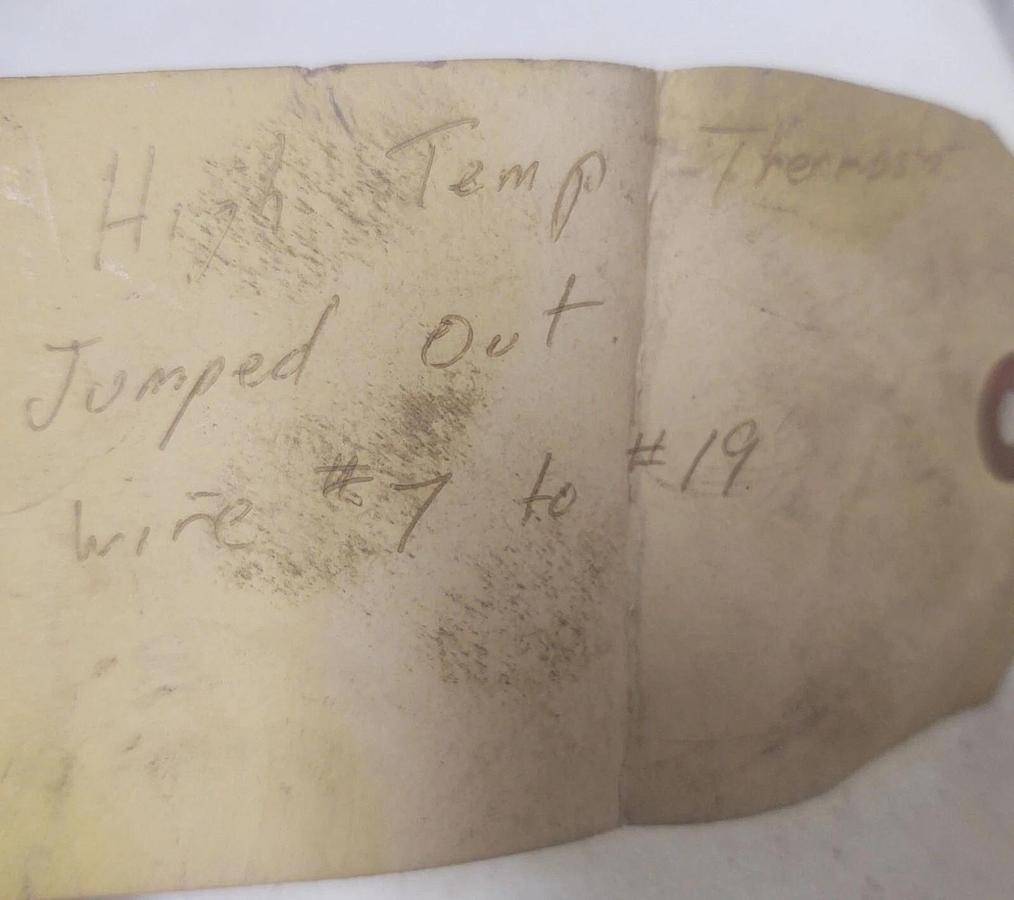 High Temp
Jumped Out
wire #7 to #19